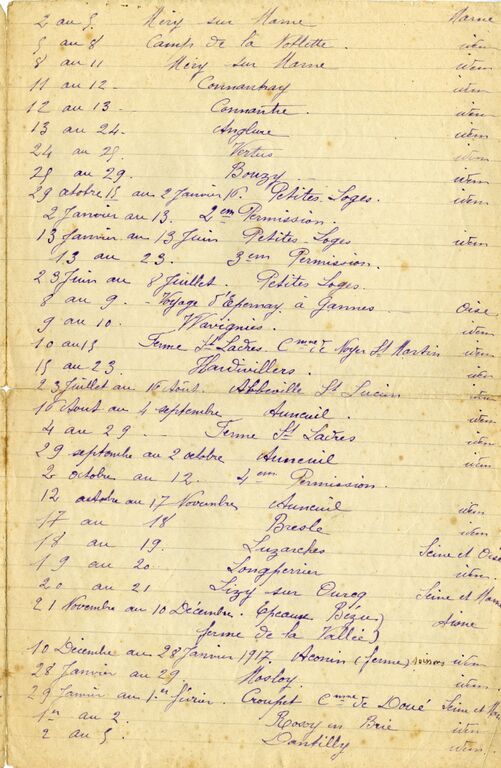 2 au 5 Méry sur Marne Marne
5 au 8 Camp de la Noblette. idem
8 au 11 Méry sur Marne idem
11 au 12 - Connantray idem
12 au 13 - Connantre. idem
13 au 24 - Anglure idem
24 au 25 Vertus idem
25 au 29. Bouzy idem
29 octobre 15 au 2 Janvier 16. Petites Loges. idem
2 Janvier au 13. 2em Permission.
13 Janvier au 13 Juin Petites Loges idem
13 au 23. 3em Permission.
23 Juin au 8 Juillet. Petites Loges.
8 au 9. - Voyage d'Epernay à Gannes. Oise
9 au 10. Wavignies. idem
10 au 15 Ferme St Ladres. Cmne de Noyer St Martin idem
15 au 23. Hardivillers. idem
23 Juillet au 16 Août. Abbeville St Lucien idem
16 Aout au 4 septembre Auneuil. idem
4 au 29 - Ferme St Ladres idem
29 septembre au 2 octobre Auneuil idem
2 octobre au 12. 4em Permission.
12 octobre au 17 Novembre Auneuil idem
17 au 18 Bresle idem
18 au 19. Luzarches Seine et Oise
19 au 20 Longperrier idem.
20 au 21 Lizy sur Ourcq Seine et Marne
21 Novembre au 10 Décembre. Epeaux Bézu) Aisne
ferme de la Vallée)
10 Décembre au 28 Janvier 1917. Aconin (ferme). idem
28 Janvier au 29. Mosloy. idem
29 Janvier au 1er février. Croupet Cmne de Doué Seine et Mne
1er au 2. Rosoy en Brie idem
2 au 5. Dontilly idem.